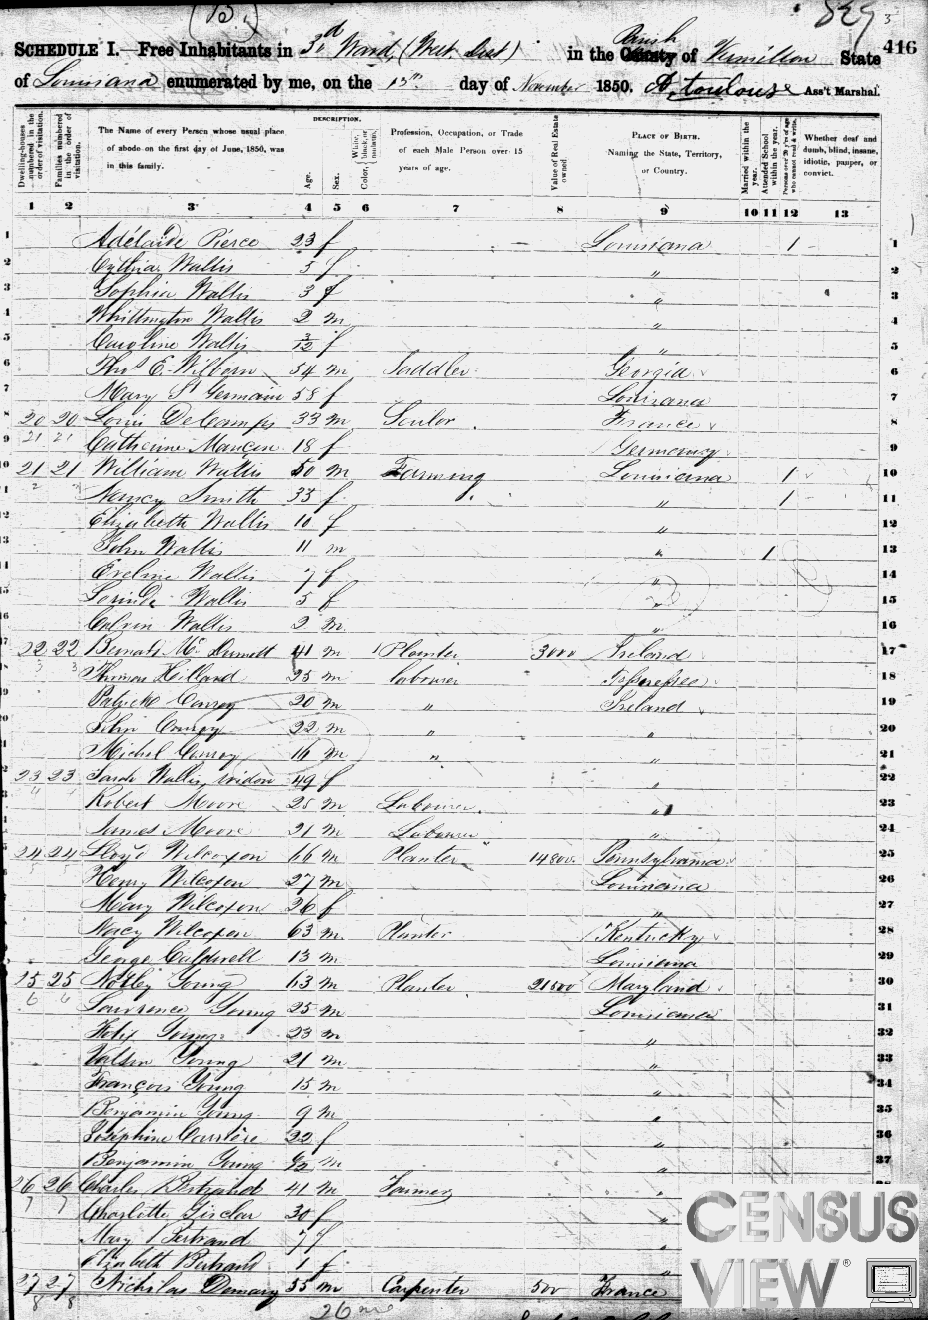 (12.) 829 3
SCHEDULE I.—Free Inhabitants in 3d Ward, (West Dist) in the Parish County of Vermillion State 416
of Louisiana enumerated by me, on the 13th day of November 1850. A. Toulouse Ass't Marshal.
Dwelling-houses numbered in the order of visitation.
Families numbered in the order of visitation.
The Name of every Person whose usual place of abode on the first day of June, 1850, was in this family.
DESCRIPTION.
Age.
Sex.
Color, { White, black, or mulatto.
Profession, Occupation, or Trade of each Male Person over 15 years of age.
Value of Real Estate owned.
PLACE OF BIRTH.
Naming the State, Territory, or Country.
Married within the year.
Attended School within the year.
Persons over 20 y'rs of age who cannot read & write.
Whether deaf and dumb, blind, insane, idiotic, pauper, or convict.
1 2 3 4 5 6 7 8 9 10 11 12 13
1 Adélaide Pierce 23 f — Louisiana 1 1
2 Wallis 5 f " 2
3 Sophia Wallis 3 f " 3
4 Whittington Wallis 2 m " 4
5 Caroline Wallis 3/12 f " 5
6 Thos E. Wilborn 54 m Saddler Georgia 6
7 Mary St Germain 58 f Louisiana 7
8 20 20 Louis DeCamps 33 m France 8
9 21 21 Catherine 18 f Germany 9
10 21 21 William Wallis 50 m Farming Louisiana 1 10
11 Nancy Smith 33 f " 1 11
12 Elizabeth Wallis 10 f " 12
13 John Wallis 11 m " 1 13
14 Eveline Wallis 7 f " 14
15 Wallis 5 f " 15
16 Calvin Wallis 2 m " 16
17 22 22 Mc 41 m Planter 3000 Ireland 17
18 Thomas Hilland 25 m Labourer 18
19 Patrick Conroy 20 m " Ireland 19
20 John Conroy 22 m " " 20
21 Michel Conroy 16 m " " 21
22 23 23 Sarah Wallis, widow 49 f " 22
23 Robert Moore 25 m Labourer " 23
24 James Moore 21 m Labourer " 24
25 24 24 Lloyd Wilcoxon 66 m Planter 14800 Pennsylvania 25
26 Henry Wilcoxon 27 m Louisiana 26
27 Mary Wilcoxon 26 f " 27
28 Wilcoxon 63 m Planter Kentucky 28
29 George Caldwell 13 m Louisiana 29
30 25 25 Notley Young 63 m Planter 21500 Maryland 30
31 Lawrence Young 25 m Louisiana 31
32 Young 23 m " 32
33 Valsin Young 21 m " 33
34 François Young 15 m " 34
35 Benjamin Young 9 m " 35
36 Joséphine Carrière 22 f " 36
37 Benjamin Young m " 37
26 26 Charles Bertrand 41 m Farmer "
Charlotte 30 f "
Mary Bertrand 7 f "
Elizabeth Bertrand 1 f "
27 27 Nicholas 35 m Carpenter 500 France
26 m
CENSUS
VIEW®